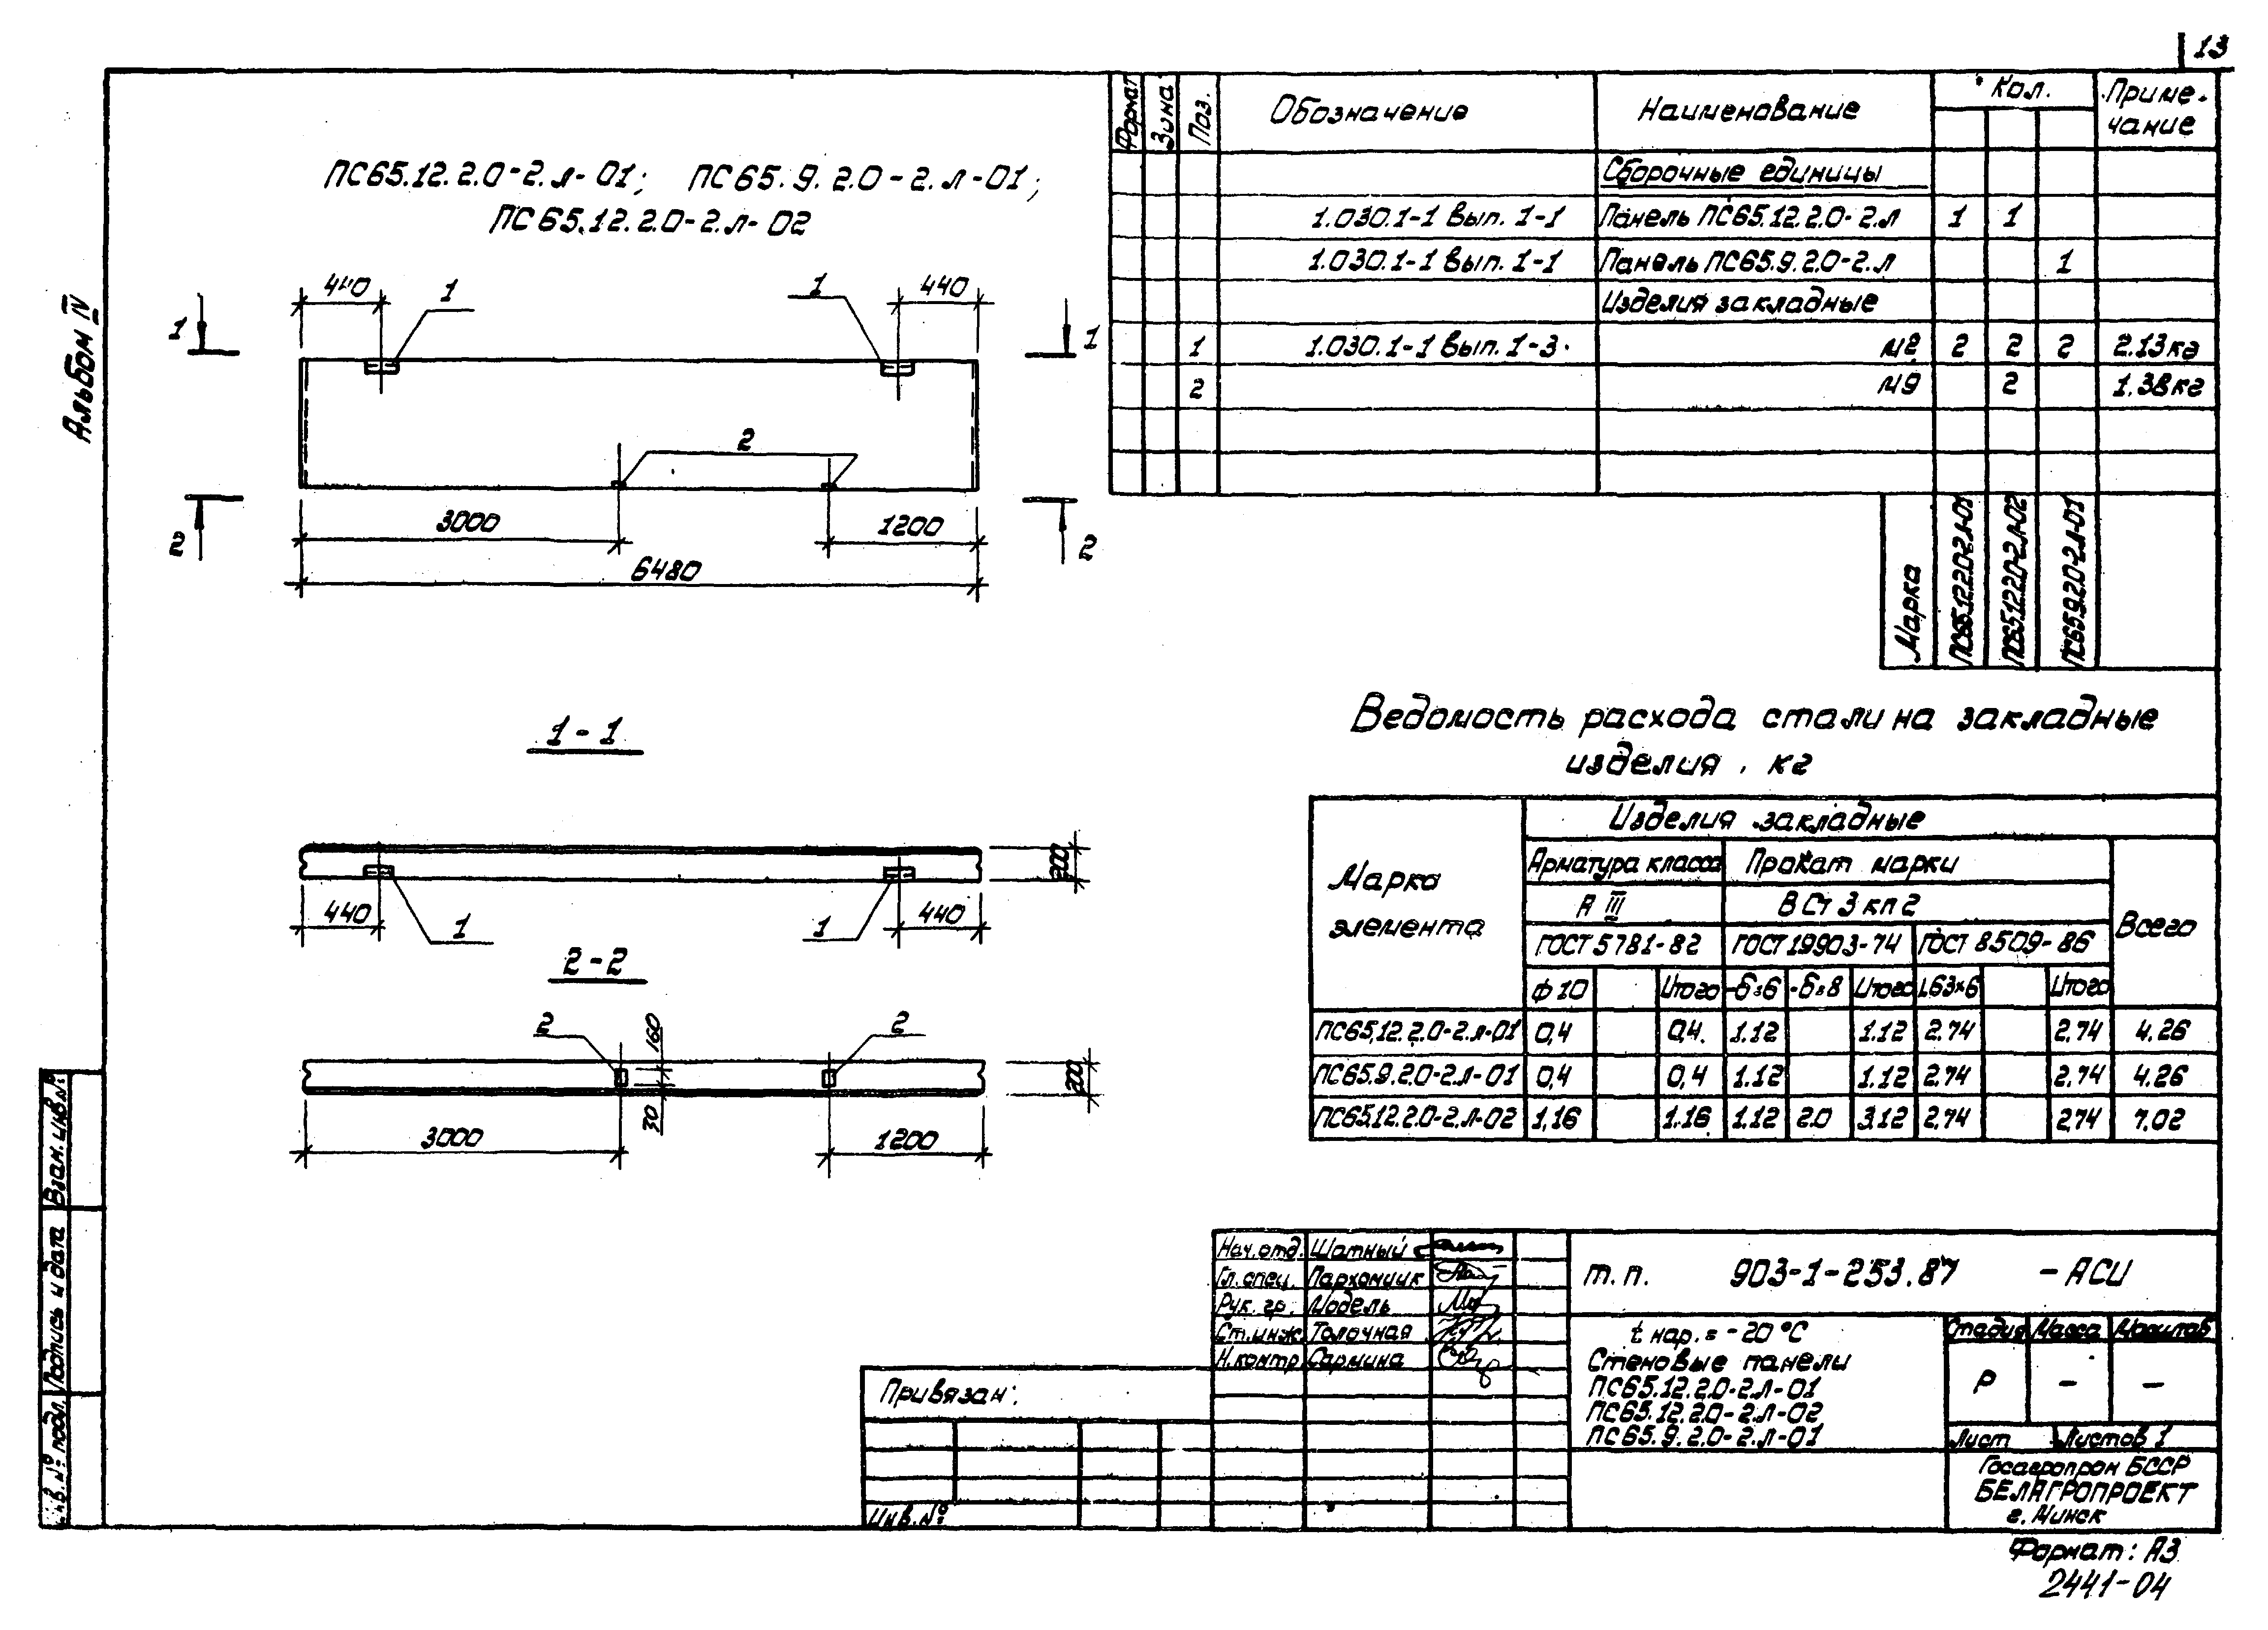 13
Альбом IV
ПС65.12.2.0-2.л-01; ПС65.9.2.0-2.л-01;
ПС65.12.2.0-2.л-02
440 1 1 440
1 1
2
2 3000 1200 2
6480
1-1
200
440 1 1 440
2-2
2 160 2
200
30
3000 1200
Формат Зона Поз. Обозначение Наименование Кол. Приме-
чание
Сборочные единицы
1.030.1-1 вып. 1-1 Панель ПС65.12.2.0-2.л 1 1
1.030.1-1 вып. 1-1 Панель ПС65.9.2.0-2.л 1
Изделия закладные
1 1.030.1-1 вып. 1-3 М2 2 2 2 2.13кг
2 М9 2 1.38кг
Марка ПС65.12.2.0-2.л-01 ПС65.12.2.0-2.л-02 ПС65.9.2.0-2.л-01
Ведомость расхода стали на закладные
изделия, кг
Марка
элемента
Изделия закладные
Арматура класса Прокат марки
А III ВСт3кп2
Всего
ГОСТ 5781-82 ГОСТ 19903-74 ГОСТ 8509-86
ф10 Итого -δ=6 -δ=8 Итого L63×6 Итого
ПС65.12.2.0-2.л-01 0,4 0,4 1.12 1.12 2.74 2.74 4.26
ПС65.9.2.0-2.л-01 0,4 0,4 1.12 1.12 2.74 2.74 4.26
ПС65.12.2.0-2.л-02 1,16 1.16 1.12 2.0 3.12 2.74 2.74 7.02
Нач.отд. Шатный
Гл.спец. Пархомчик
Рук. гр. Модель
Ст.инж. Толочная
Н.контр. Сармина
т.п. 903-1-253.87 -АСИ
t нар.= -20°С
Стеновые панели
ПС65.12.2.0-2.л-01
ПС65.12.2.0-2.л-02
ПС65.9.2.0-2.л-01
Стадия Масса Масштаб
Р - -
Лист Листов 1
Госагропром БССР
БЕЛАГРОПРОЕКТ
г. Минск
Привязан:
Инв.№
Взам.инв.№
Подпись и дата
Инв.№ подл.
Формат: А3
2441-04